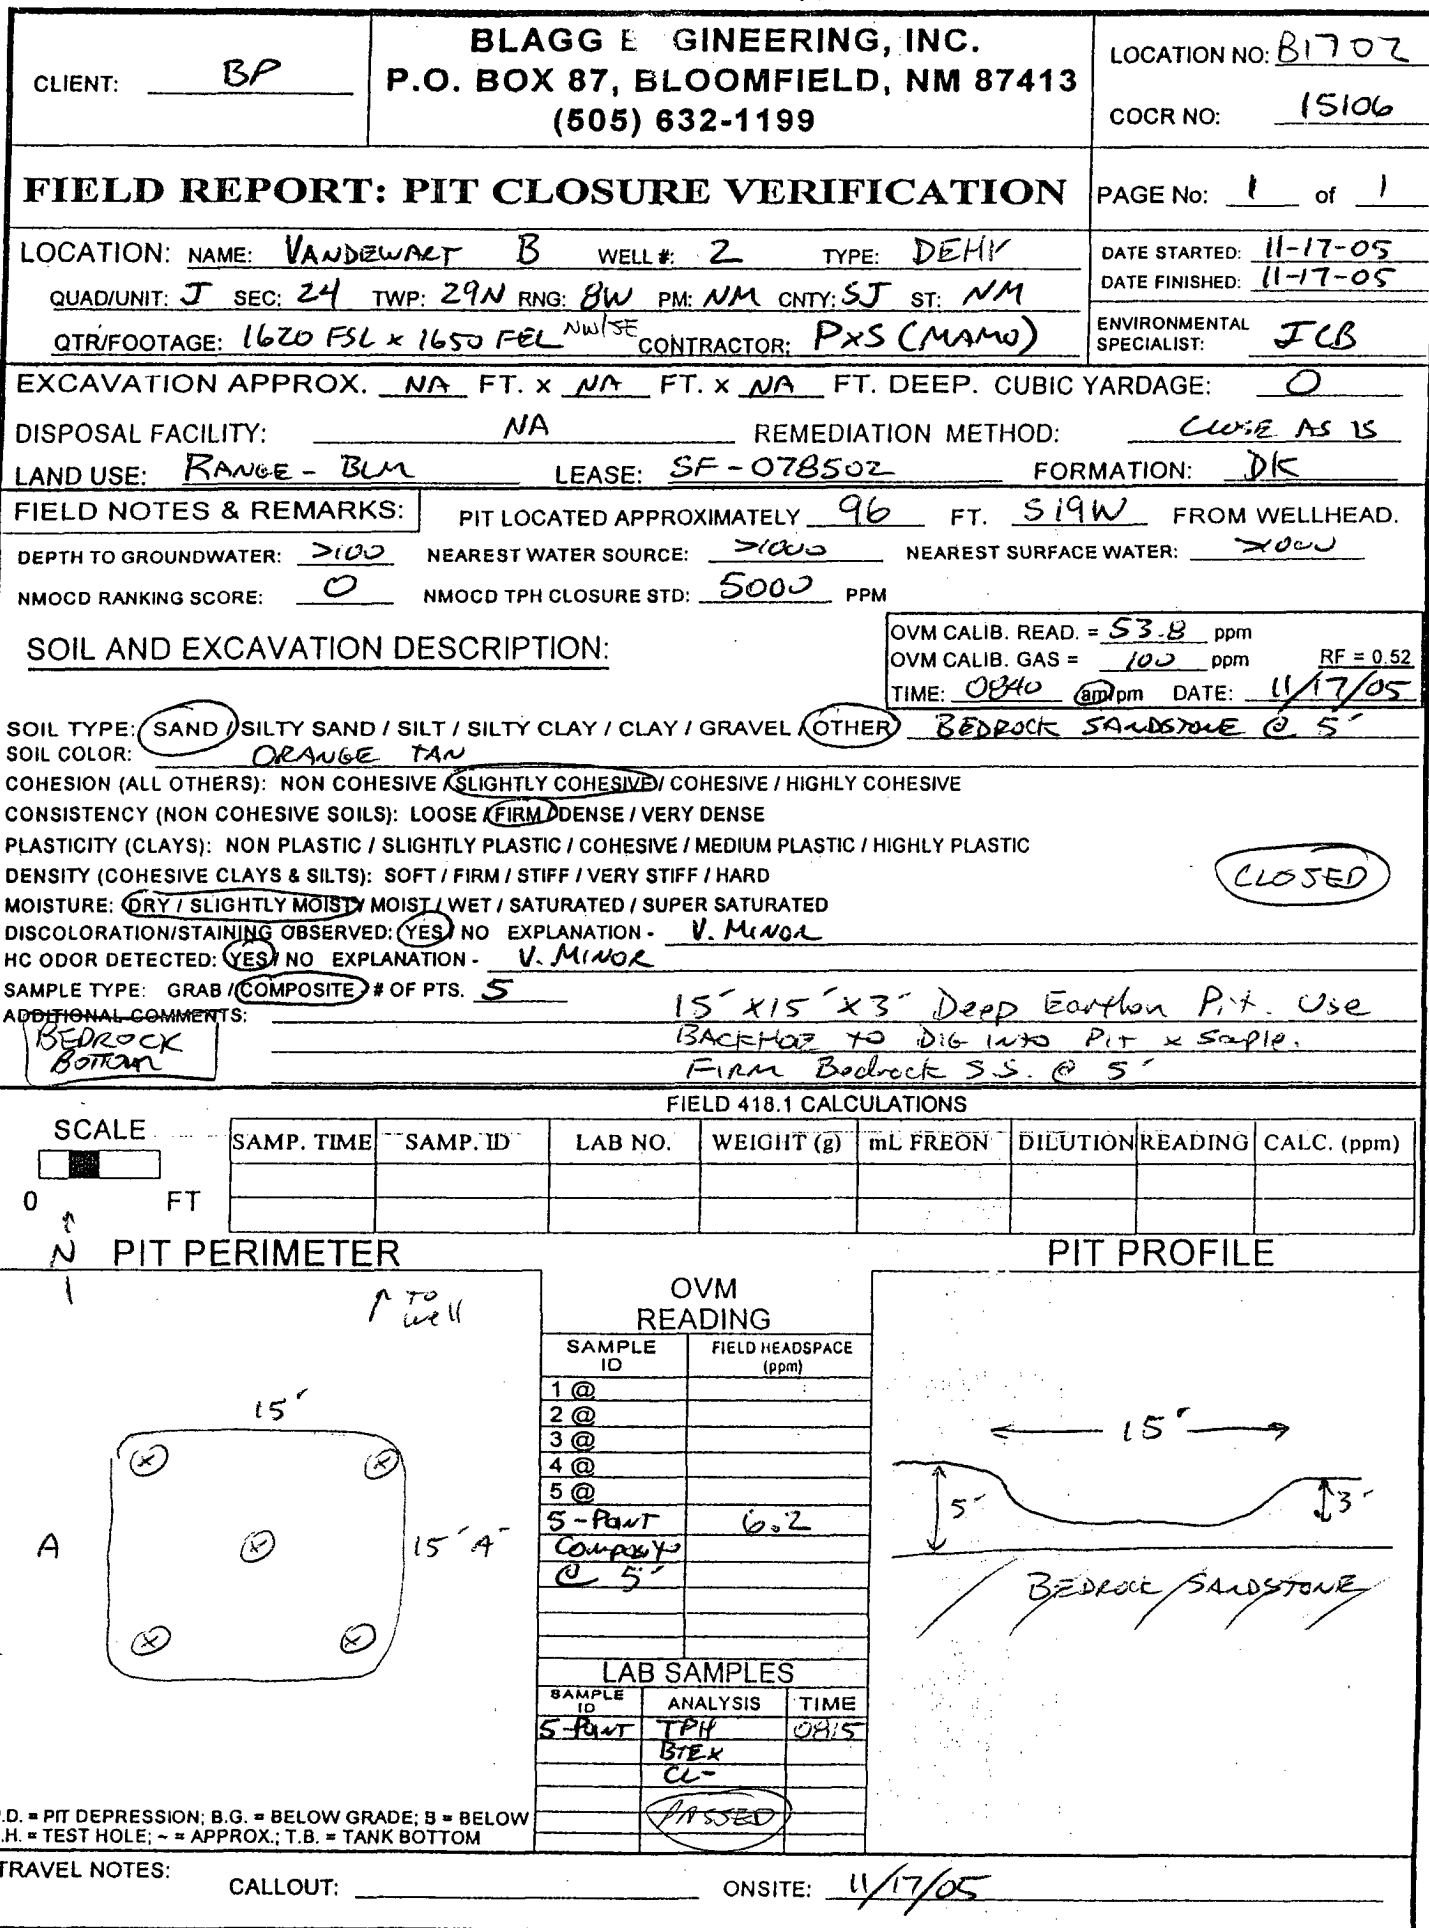 CLIENT: BP
BLAGG E GINEERING, INC.
P.O. BOX 87, BLOOMFIELD, NM 87413
(505) 632-1199
LOCATION NO: B1702
COCR NO: 15106
FIELD REPORT: PIT CLOSURE VERIFICATION
PAGE No: 1 of 1
LOCATION: NAME: VANDEWART B WELL #: 2 TYPE: DEHY
QUAD/UNIT: J SEC: 24 TWP: 29N RNG: 8W PM: NM CNTY: SJ ST: NM
QTR/FOOTAGE: 1620 FSL x 1650 FEL NW/SE CONTRACTOR: PxS (MAMO)
DATE STARTED: 11-17-05
DATE FINISHED: 11-17-05
ENVIRONMENTAL
SPECIALIST: JCB
EXCAVATION APPROX. NA FT. x NA FT. x NA FT. DEEP. CUBIC YARDAGE: 0
DISPOSAL FACILITY: NA REMEDIATION METHOD: CLOSE AS IS
LAND USE: RANGE - BLM LEASE: SF-078502 FORMATION: DK
FIELD NOTES & REMARKS: PIT LOCATED APPROXIMATELY 96 FT. S19W FROM WELLHEAD.
DEPTH TO GROUNDWATER: >100 NEAREST WATER SOURCE: >1000 NEAREST SURFACE WATER: >1000
NMOCD RANKING SCORE: 0 NMOCD TPH CLOSURE STD: 5000 PPM
SOIL AND EXCAVATION DESCRIPTION:
OVM CALIB. READ. = 53.8 ppm
OVM CALIB. GAS = 100 ppm RF = 0.52
TIME: 0840 am/pm DATE: 11/17/05
SOIL TYPE: SAND / SILTY SAND / SILT / SILTY CLAY / CLAY / GRAVEL / OTHER BEDROCK SANDSTONE @ 5'
SOIL COLOR: ORANGE TAN
COHESION (ALL OTHERS): NON COHESIVE / SLIGHTLY COHESIVE / COHESIVE / HIGHLY COHESIVE
CONSISTENCY (NON COHESIVE SOILS): LOOSE / FIRM / DENSE / VERY DENSE
PLASTICITY (CLAYS): NON PLASTIC / SLIGHTLY PLASTIC / COHESIVE / MEDIUM PLASTIC / HIGHLY PLASTIC
DENSITY (COHESIVE CLAYS & SILTS): SOFT / FIRM / STIFF / VERY STIFF / HARD
CLOSED
MOISTURE: DRY / SLIGHTLY MOIST / MOIST / WET / SATURATED / SUPER SATURATED
DISCOLORATION/STAINING OBSERVED: YES / NO EXPLANATION - V. MINOR
HC ODOR DETECTED: YES / NO EXPLANATION - V. MINOR
SAMPLE TYPE: GRAB / COMPOSITE # OF PTS. 5
ADDITIONAL COMMENTS: 15' x 15' x 3' Deep Earthen Pit. Use
BACKHOE to DIG INTO PIT x Saple.
FIRM Bedrock S.S. @ 5'
BEDROCK
BOTTOM
FIELD 418.1 CALCULATIONS
SCALE
0 FT
SAMP. TIME SAMP. ID LAB NO. WEIGHT (g) mL FREON DILUTION READING CALC. (ppm)
N PIT PERIMETER
PIT PROFILE
TO
well
15'
A 15' A'
OVM
READING
SAMPLE ID FIELD HEADSPACE (ppm)
1 @
2 @
3 @
4 @
5 @
5-Point 6.2
Composite
@ 5'
LAB SAMPLES
SAMPLE ID ANALYSIS TIME
5-Point TPH 0815
BTEX
CL-
PASSED
15'
5' 3'
BEDROCK SANDSTONE
.D. = PIT DEPRESSION; B.G. = BELOW GRADE; B = BELOW
.H. = TEST HOLE; ~ = APPROX.; T.B. = TANK BOTTOM
TRAVEL NOTES:
CALLOUT: ONSITE: 11/17/05